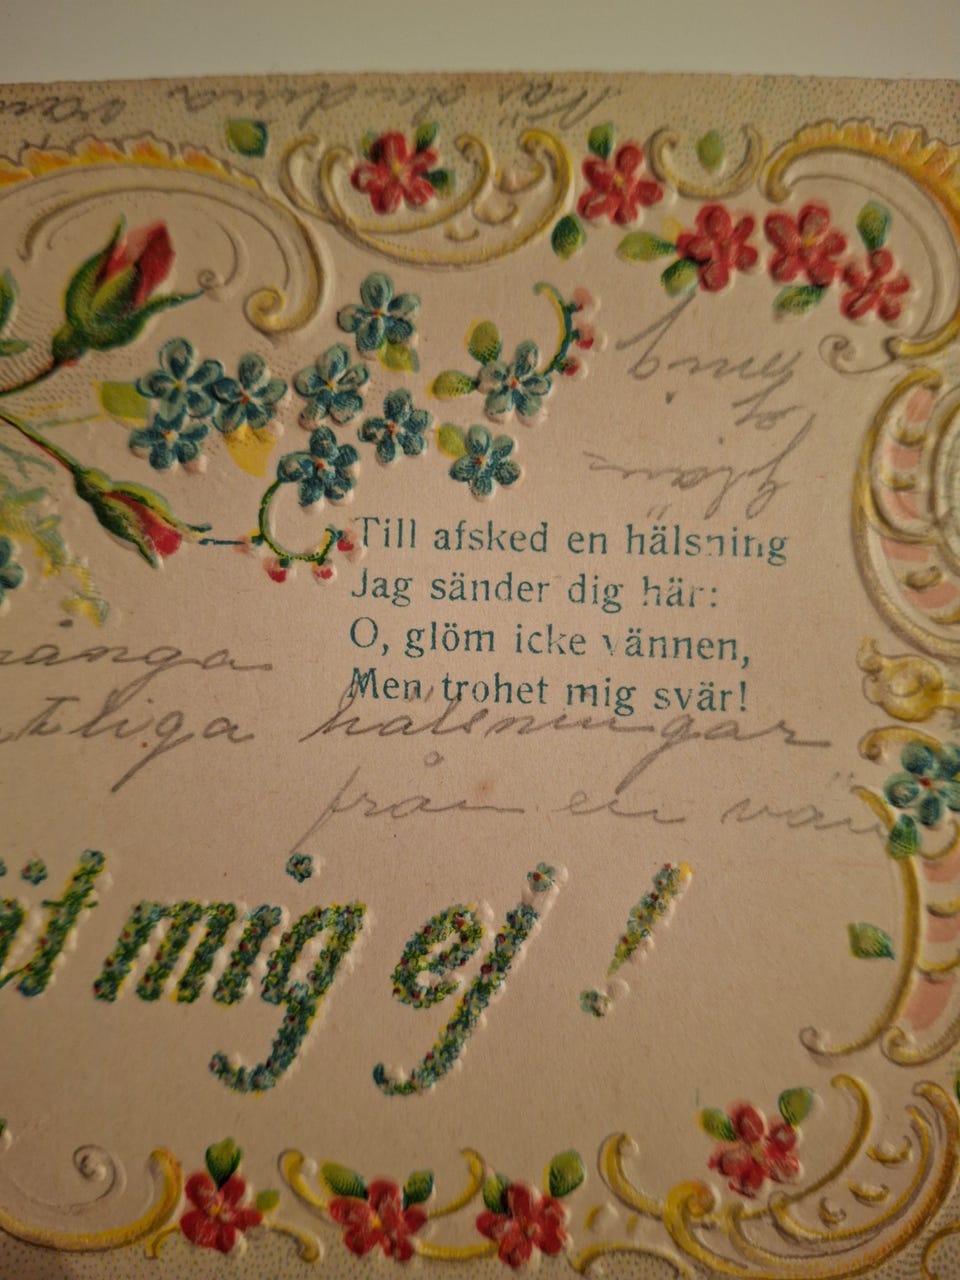 När du dina vän
glöm
ej
mig
Till afsked en hälsning
Jag sänder dig här:
O, glöm icke vännen,
Men trohet mig svär!
många
tliga hälsningar
från en vän
ät mig ej !